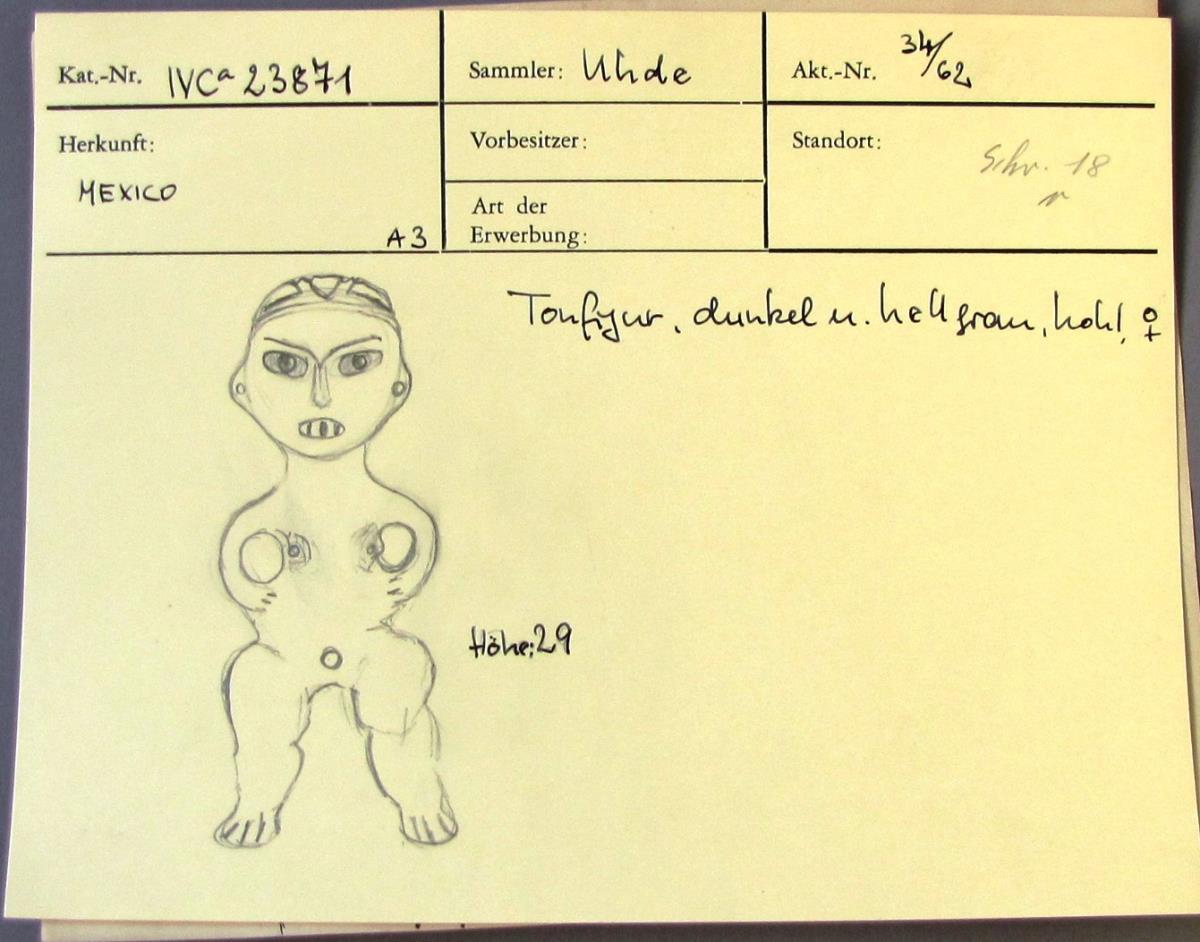 Kat.-Nr. IVCa 23871
Sammler: Uhde
Akt.-Nr. 34/62
Herkunft:
MEXICO
A3
Vorbesitzer:
Art der
Erwerbung:
Standort:
Schr. 18
Tonfigur, dunkel u. hellgrau, hohl, ♀
Höhe: 29